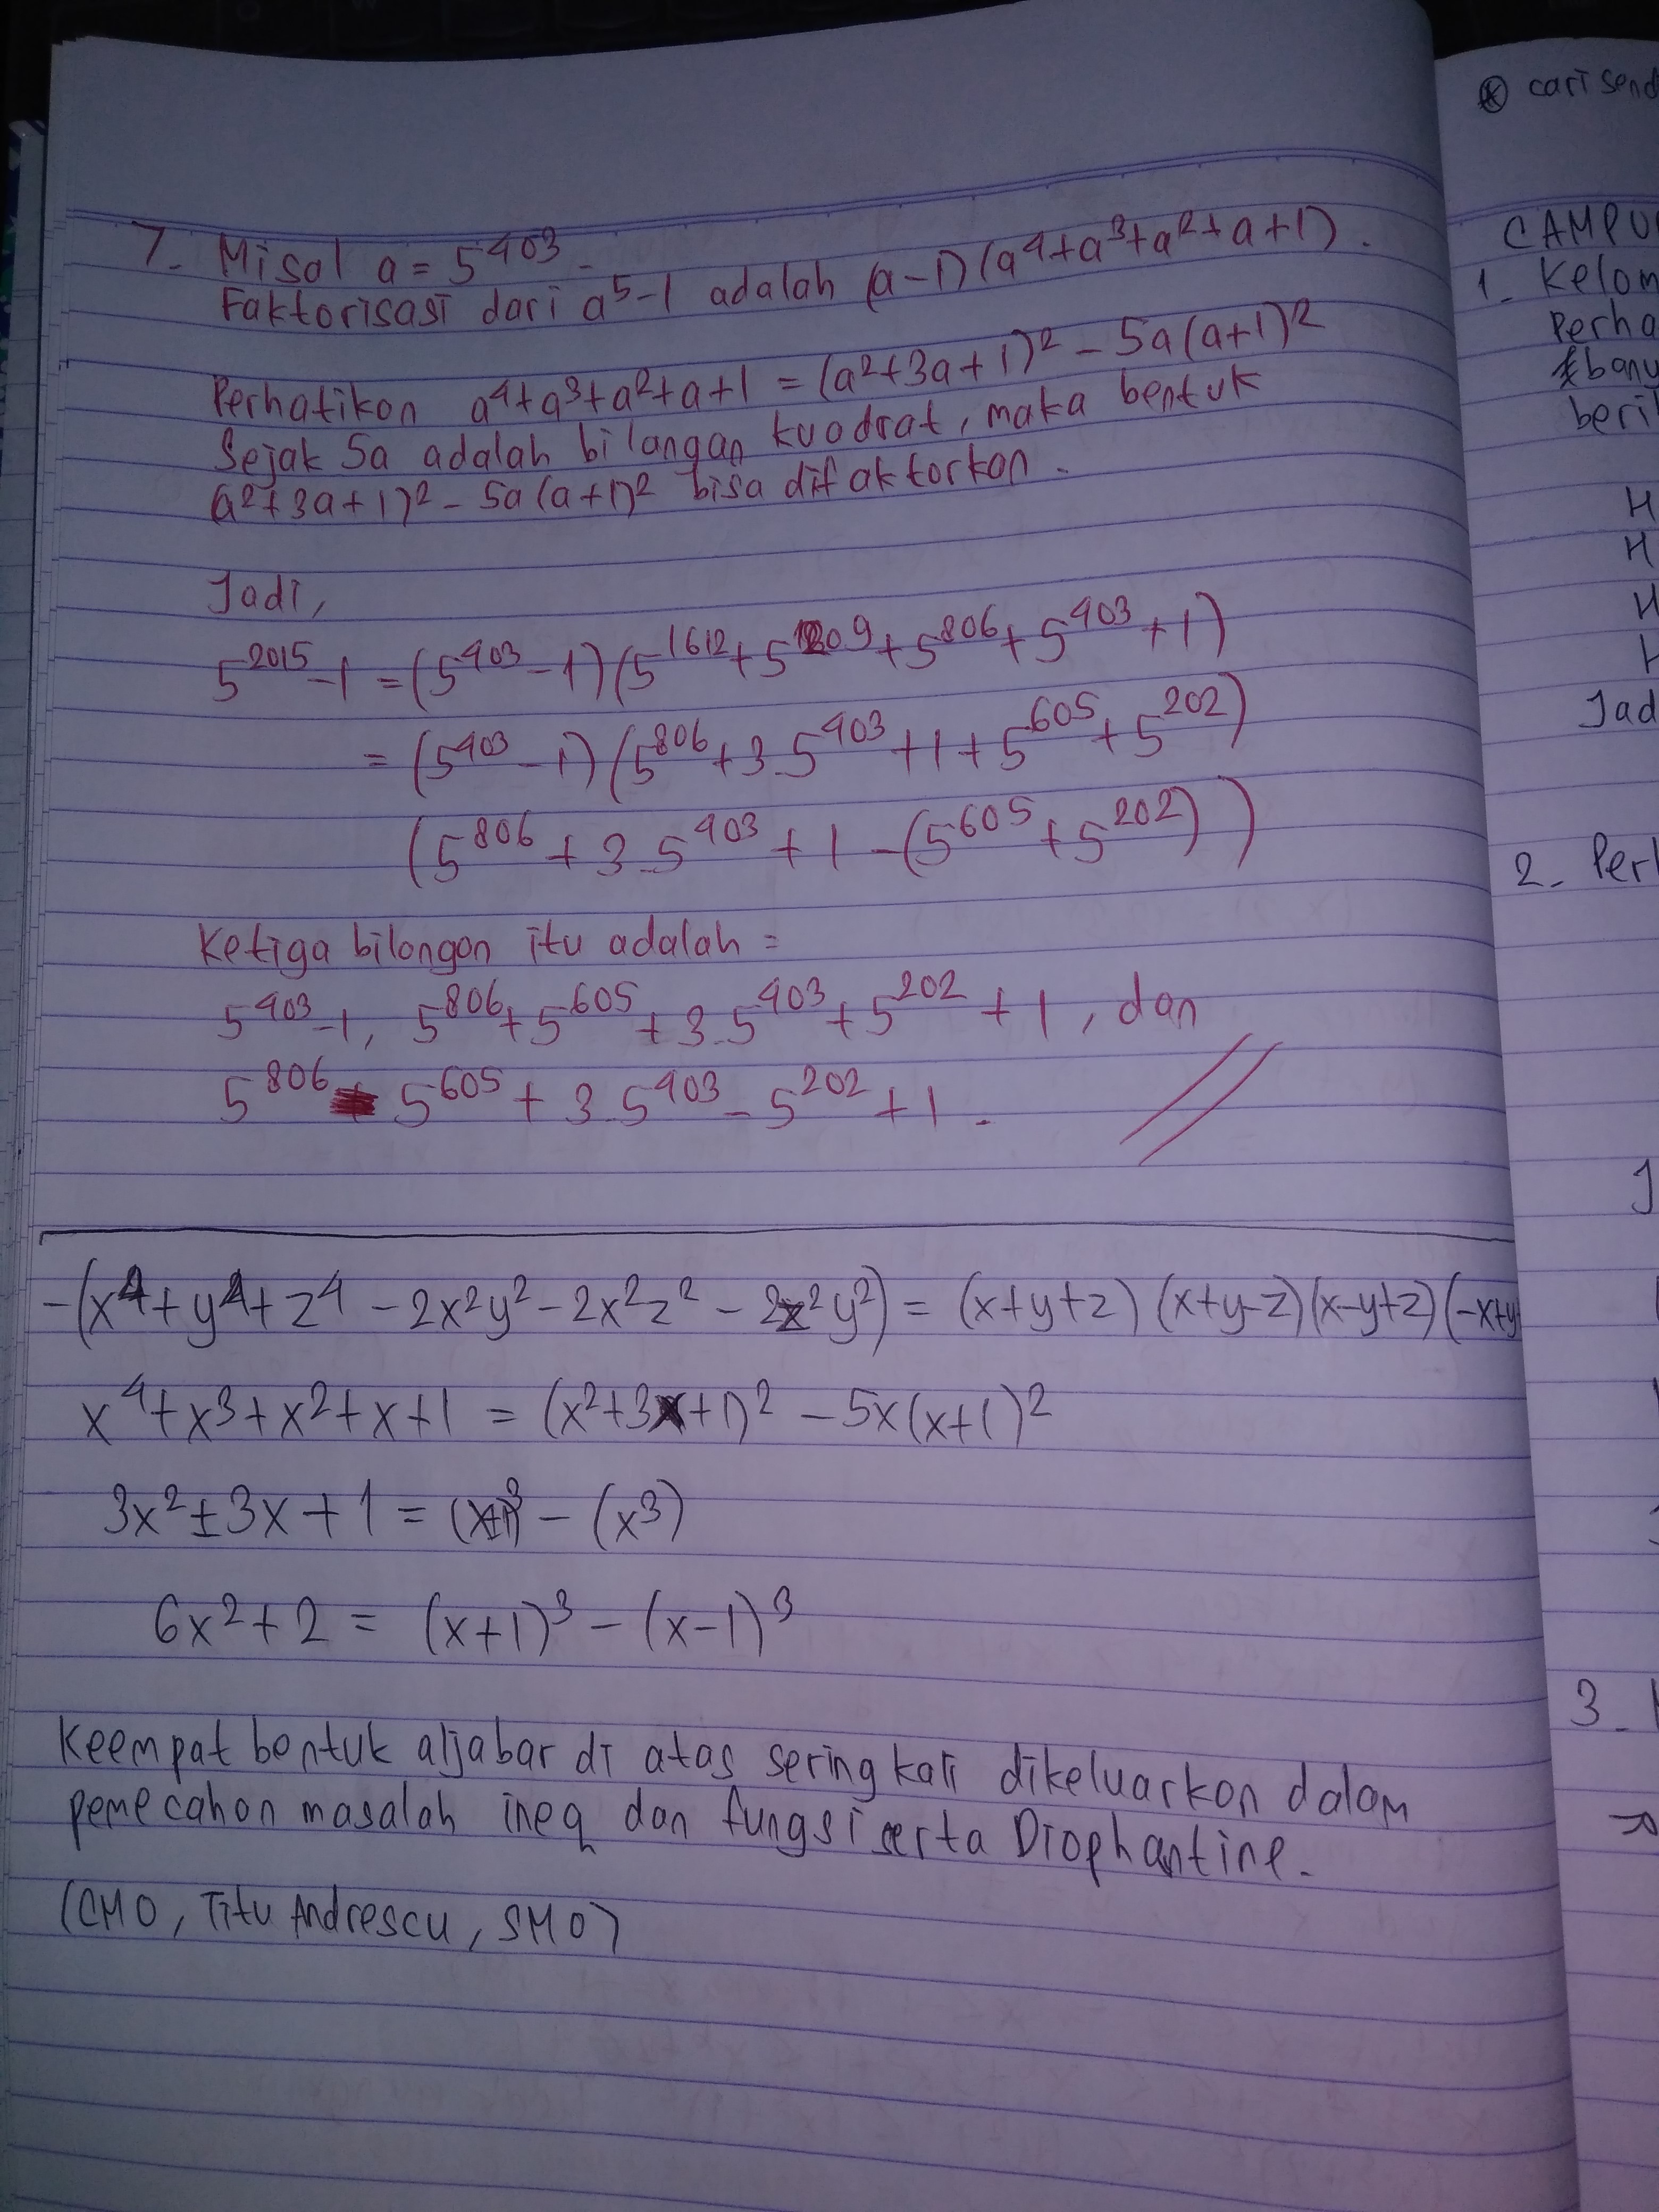 7. Misal a = 5^403.
Faktorisasi dari a^5-1 adalah (a-1)(a^4+a^3+a^2+a+1).
Perhatikan a^4+a^3+a^2+a+1 = (a^2+3a+1)^2 - 5a(a+1)^2
Sejak 5a adalah bilangan kuadrat, maka bentuk
(a^2+3a+1)^2 - 5a(a+1)^2 bisa difaktorkan.
Jadi,
5^2015-1 = (5^403-1)(5^1612+5^1209+5^806+5^403+1)
= (5^403-1)(5^806+3.5^403+1+5^605+5^202)
(5^806+3.5^403+1-(5^605+5^202))
Ketiga bilangan itu adalah =
5^403-1, 5^806+5^605+3.5^403+5^202+1, dan
5^806-5^605+3.5^403-5^202+1.
-(x^4+y^4+z^4-2x^2y^2-2x^2z^2-2z^2y^2) = (x+y+z)(x+y-z)(x-y+z)(-x+y
x^4+x^3+x^2+x+1 = (x^2+3x+1)^2 - 5x(x+1)^2
3x^2±3x+1 = (x±1)^3 - (x^3)
6x^2+2 = (x+1)^3 - (x-1)^3
Keempat bentuk aljabar di atas seringkali dikeluarkan dalam
pemecahan masalah ineq dan fungsi serta Diophantine.
(CMO, Titu Andrescu, SMO)
(*) cari send
CAMPU
1. Kelom
Perha
banu
beri
H
H
H
H
Jad
2. Per
J
3.